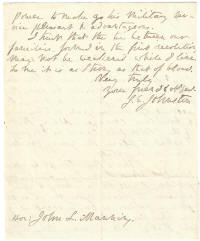 power to make his military ser-
vice pleasant & advantageous.
I trust that the tie between our
families formed in the first revolution
may not be weakened while I live
to me it is as strong as that of blood.
Very truly
Your friend &
J. E. Johnston
Hon: John L. Manning